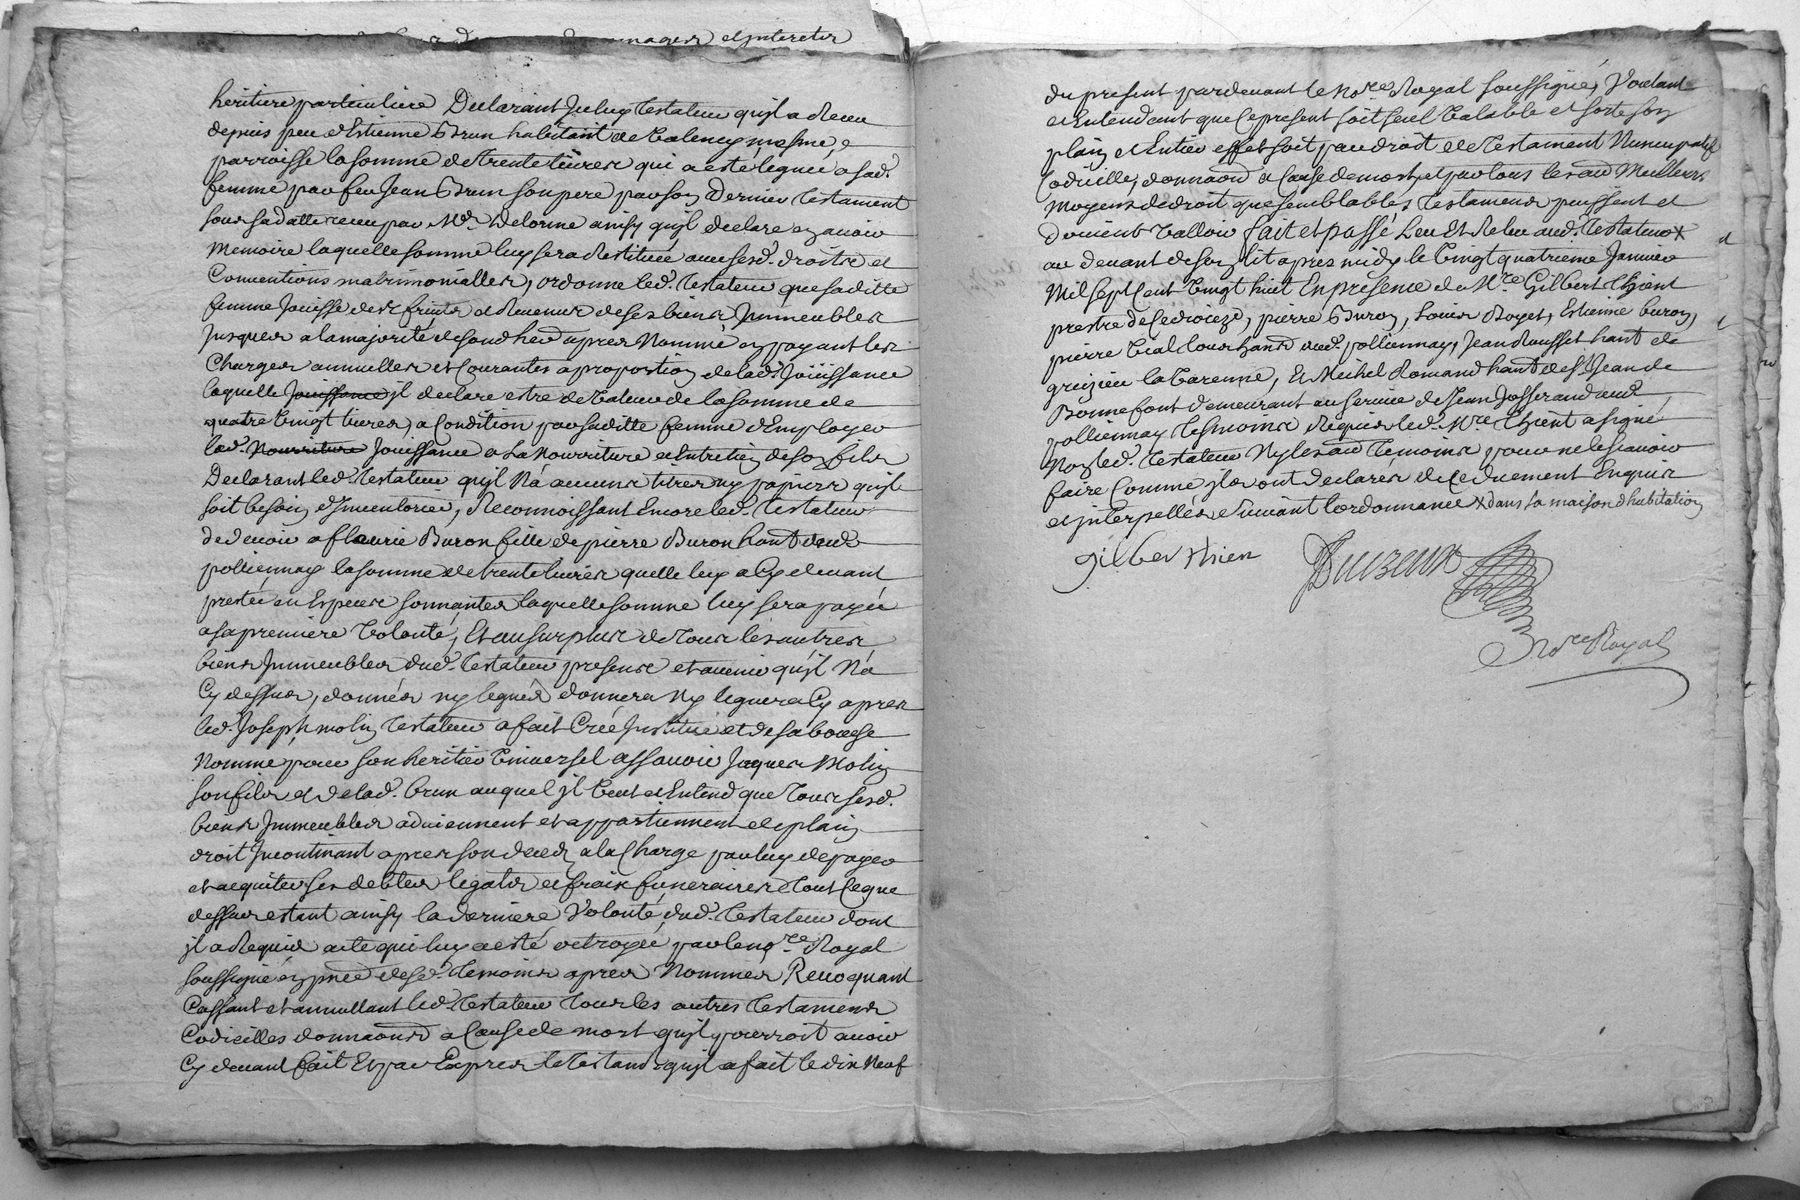 heritiere particuliere Declarant Jceluy testateur quil a Receu
depuis peu d'Estienne Brun habitant de Valency mesme
parroisse la somme de trente livres qui a esté leguée a sad.
femme par feu Jean Brun son pere par son dernier testament
sous sa datte receu par Me. Delorme ainsy quil declare en avoir
memoire laquelle somme luy sera Restituée avec sesd. droits et
Conventions matrimonialles, ordonne led. testateur que saditte
femme Jouisse des fruits et Revenus de ses biens Jmmeubles
Jusques a la majorité de sond her apres Nommé en payant les
Charges annuelles et Courantes a proportion de lad. Jouissance
laquelle Jouissance il declare estre de Valeur de la somme de
quatre Vingt livres, a Condition par saditte femme d'Employer
lad. Nourriture Jouissance a La Nourriture et Entretien de son fils
Declarant led. testateur quil N'a aucuns titres ny papiers quil
soit besoin d'Jnventorier, Reconnoissant Encore led. testateur
de devoir a fleurie Buron fille de pierre Buron hant dud.
polliennay la somme de trente livres quelle luy a Cy devant
prestée en Especes sonnantes laquelle somme luy sera payée
a sa premiere Volonté, Et au surplus de tous les autres
biens Jmmeubles dud. testateur presens et avenir quil N'a
Cy dessus, donnés ny legués donnera Ny leguera Cy apres
led. Joseph molin testateur a fait Créé Jnstitué et de sa bouche
Nommé pour son heritier Universel assavoir Jaques Molin
son fils et de lad. brun auquel il Veut et Entend que tous sesd.
biens Jmmeubles adviennent et appartiennent de plain
droit Jncontinant apres son deced, a la Charge par luy de payer
et acquiter ses debtes legats et fraix funeraires tout Ceque
dessus estant ainsy la derniere Volonté dud. testateur dont
il a Requis acte qui luy a esté octroyée par le nore Royal
soussigné en pnce desd. temoins apres Nommés Revoquant
Cassant et annullant led. testateur tous les autres testamens
Codicilles donnaons a Cause de mort quil pourroit avoir
Cy devant fait Et par Expres le testamt quil a fait le dix Neuf
du present pardevant le Nore Royal soussigné, Voulant
et Entendant que Ce present soit seul Valable et sorte son
plain et Entier effet soit par droit de testament Nuncupatif
Codicille, donnaon a Cause de mort, et par tous les au Meilleurs
moyens de droit que semblables testamens puissent et
doivent Valloir fait et passé Leu Et Releu aud. testateur X
au devant de son lit apres midy le Vingt quatrieme Janvier
Mil sept Cent Vingt huit En presence de Mre Gilbert Thient
prestre pierre Buron, Louis Royet, Estienne buron,
pierre Vial tous hants dud. polliennay, Jean Rousset hant de
greizieu la Varenne, Et Michel Romand hant de St Jean de
Bonnefont demeurant au service de Jean Josserand dud.
polliennay tesmoins Requis led. Mre Thient a signé
Non led. testateur Ny les au temoins pour ne le scavoir
faire Comme ils ont declarés de Ce duement Enquis
et Jnterpellés suivant l'ordonnance X dans sa maison d'habitation
gilber thien
Nore Royal